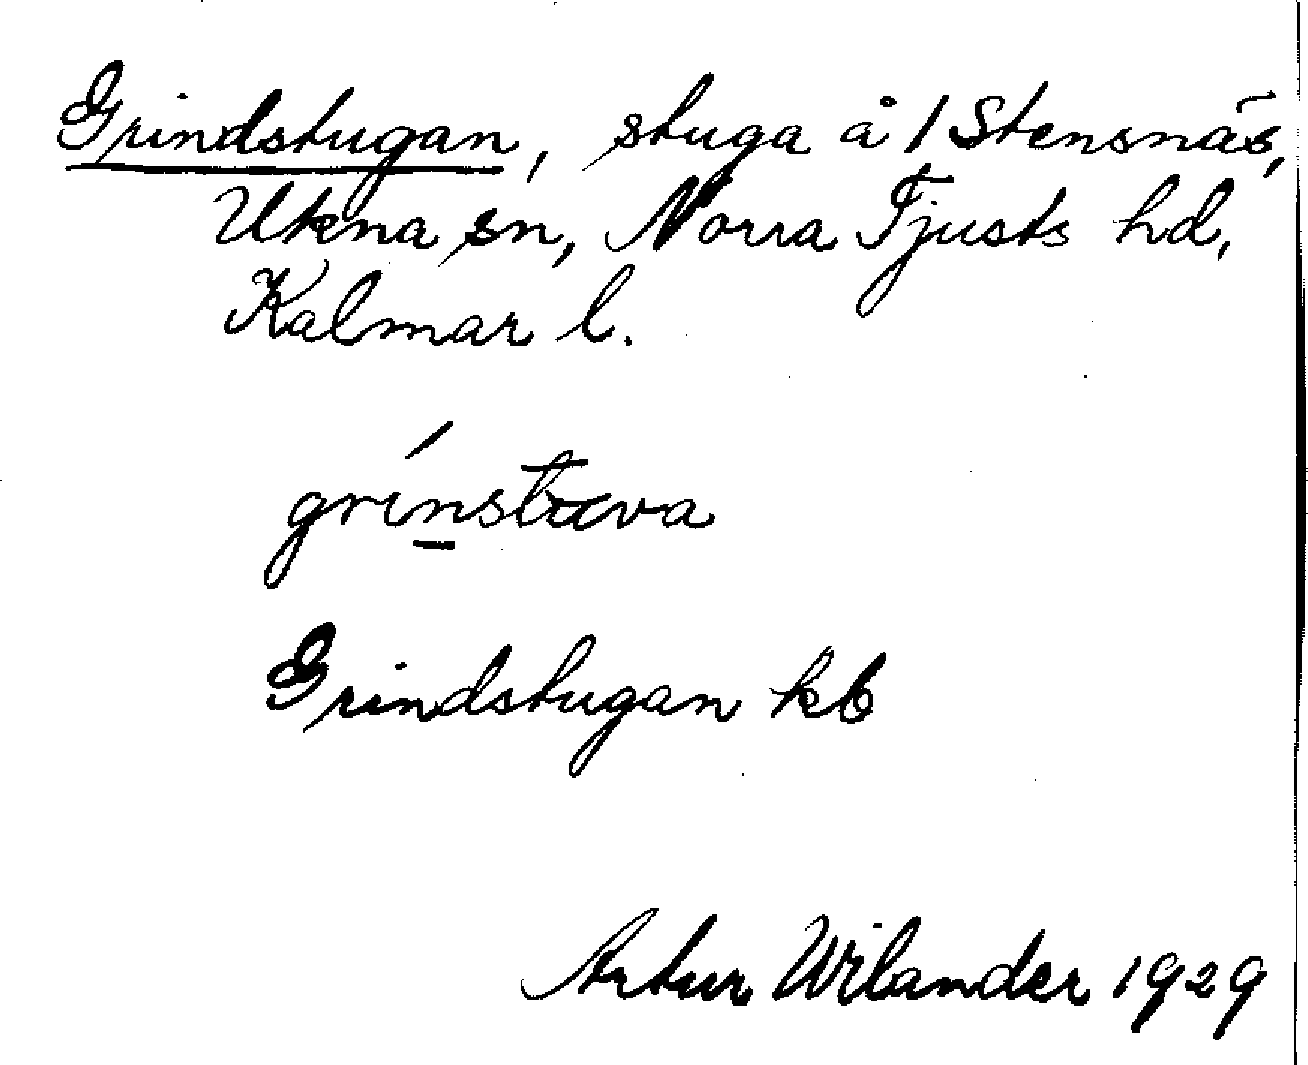 Grindstugan, stuga å / Stensnäs,
Ukna sn, Norra Tjusts hd,
Kalmar l.
grínstuva
Grindstugan kb
Artur Wilander 1929